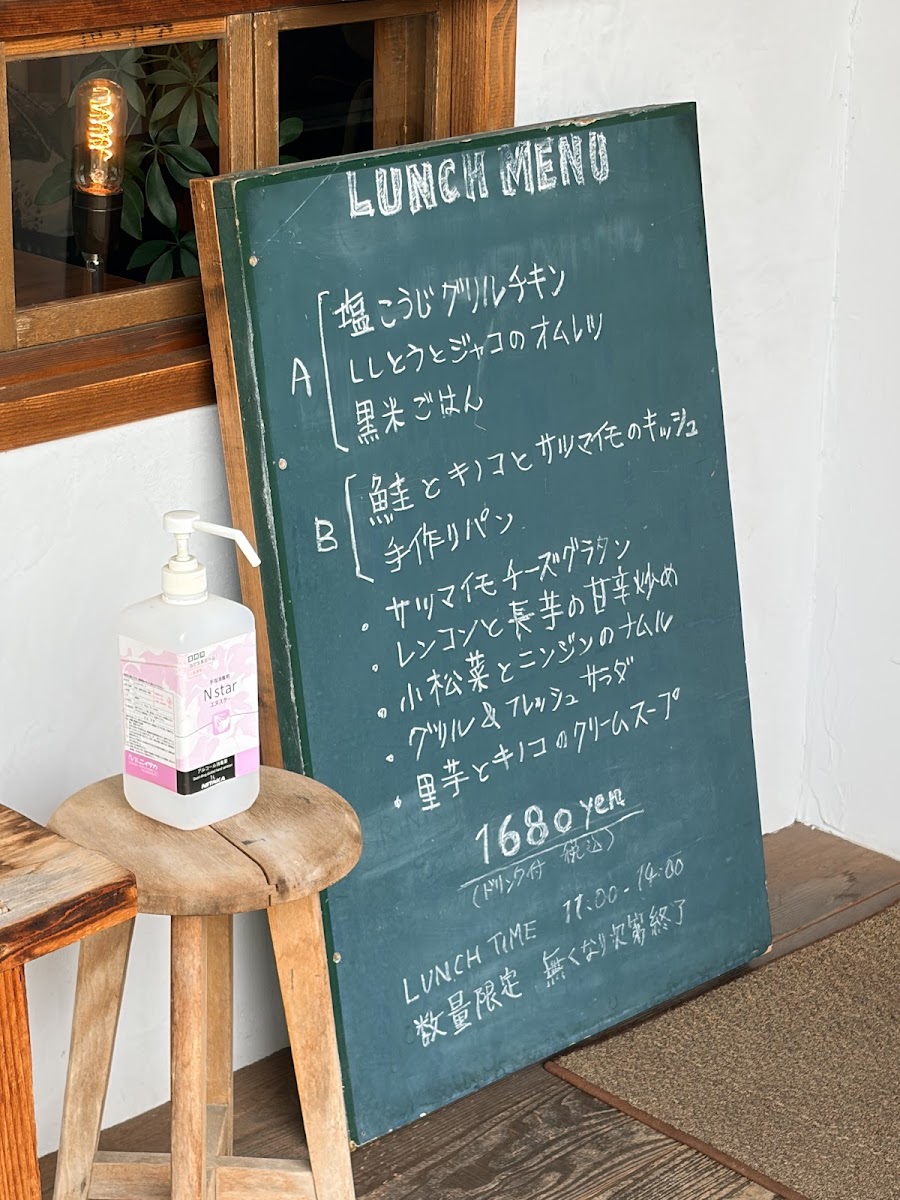 LUNCH MENU
A
塩こうじグリルチキン
ししとうとジャコのオムレツ
黒米ごはん
B
鮭とキノコとサツマイモのキッシュ
手作りパン
・サツマイモチーズグラタン
・レンコンと長芋の甘辛炒め
・小松菜とニンジンのナムル
・グリル&フレッシュサラダ
・里芋とキノコのクリームスープ
1680yen
(ドリンク付 税込)
LUNCH TIME 11:00-14:00
数量限定 無くなり次第終了
N star
エヌスター
アルコール消毒液
NIITAKA